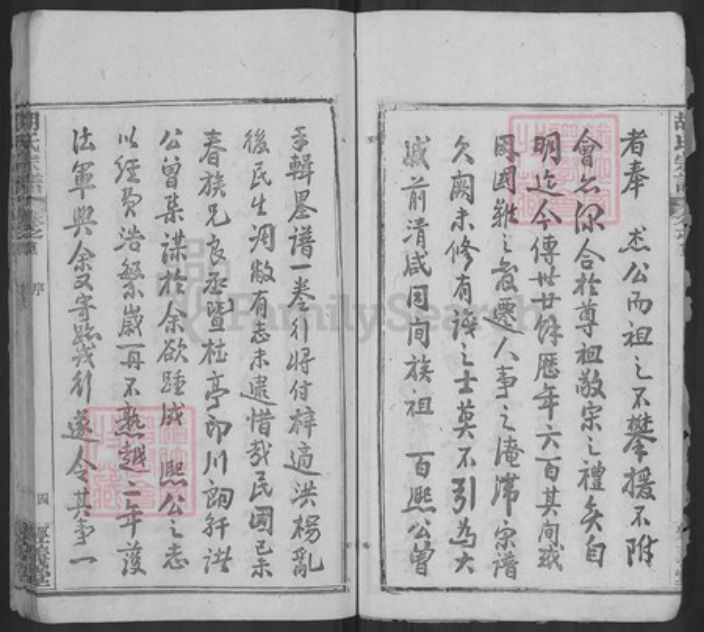 者奉 杰公而祖之不攀援不附
會亦深合於尊祖敬宗之禮矣自
明迄今傳世廿餘歷年六百其間或
因國難之發遷人事之淹滯宗譜
久闕未修有識之士莫不引為大
戚前清咸同間族祖 百熙公曾
手輯墨譜一卷行將付梓適洪楊亂
後民生凋敝有志未逮惜哉民國己未
春族兄良丞暨桂亭印川嗣軒諸
公曾集謀於余欲踵成 熙公之志
以經費浩繁歲再不熟越二年護
法軍興余又寄跡戎行遂令其事一
胡氏宗譜 卷之首 序 四
FamilySearch